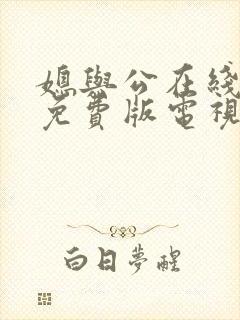 媳與公在綫
免費版電視
白日夢醒